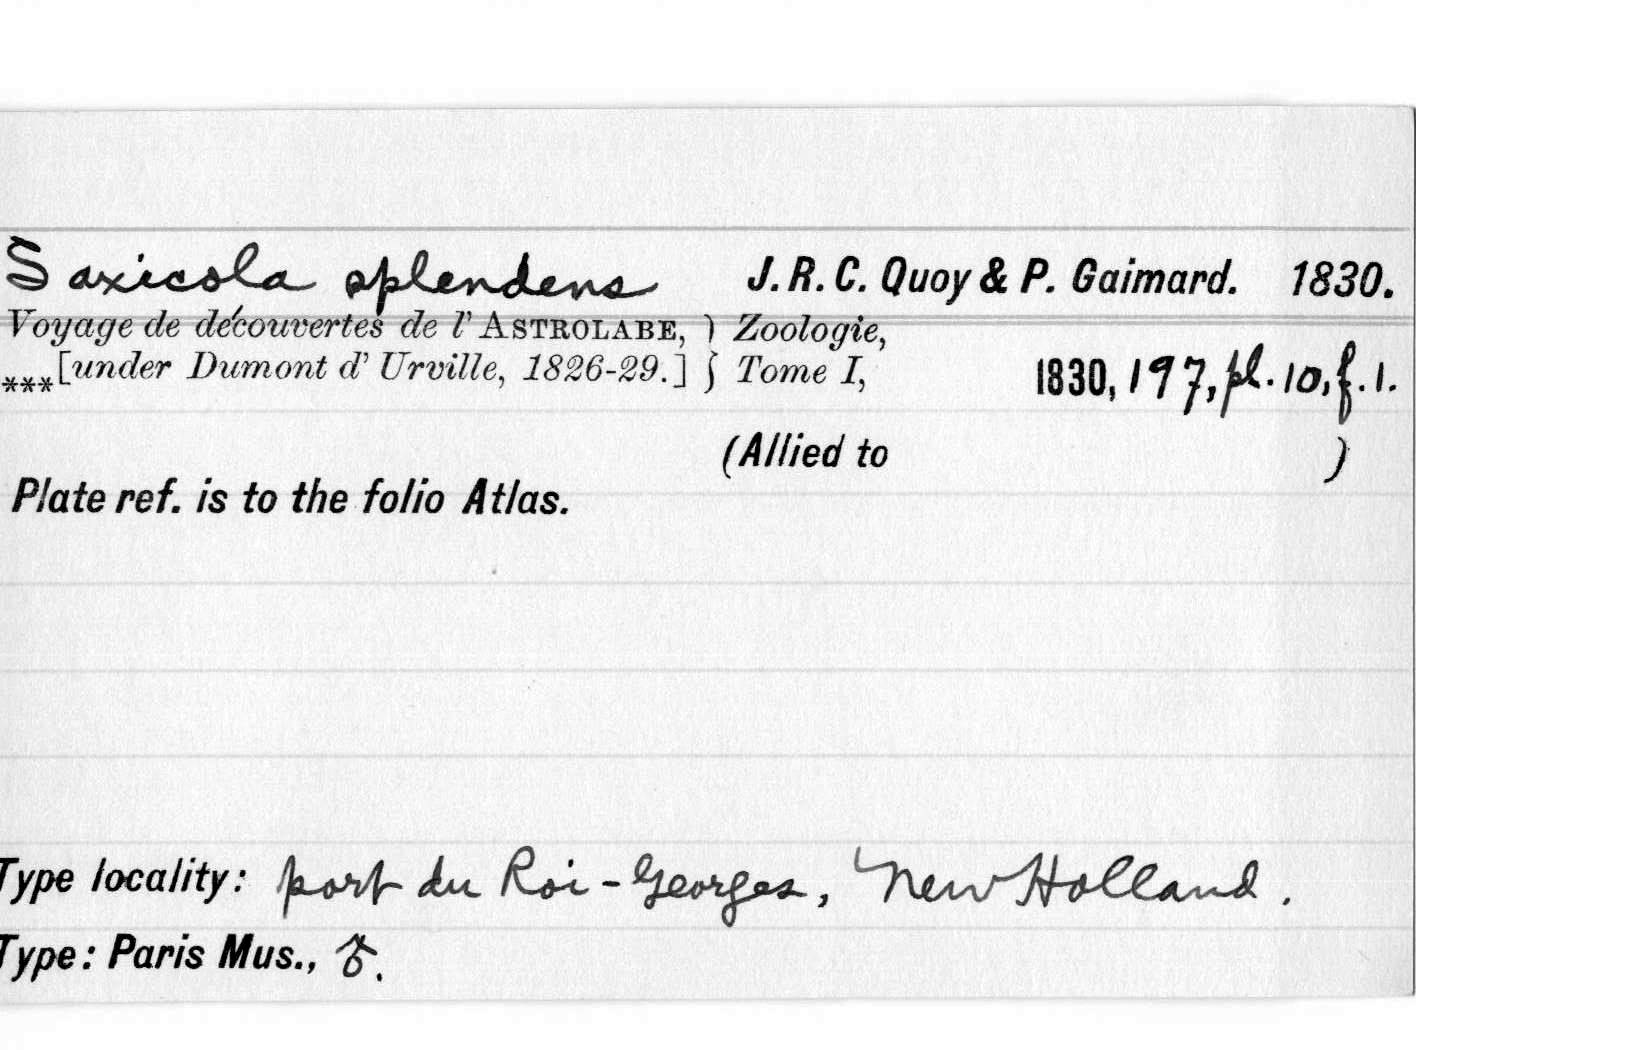 Saxicola splendens J. R. C. Quoy & P. Gaimard. 1830.
Voyage de découvertes de l' ASTROLABE, } Zoologie,
***[under Dumont d' Urville, 1826-29.] } Tome I, 1830, 197, pl. 10, f. 1.
(Allied to )
Plate ref. is to the folio Atlas.
Type locality: port du Roi-Georges, New Holland.
Type: Paris Mus., ♂.